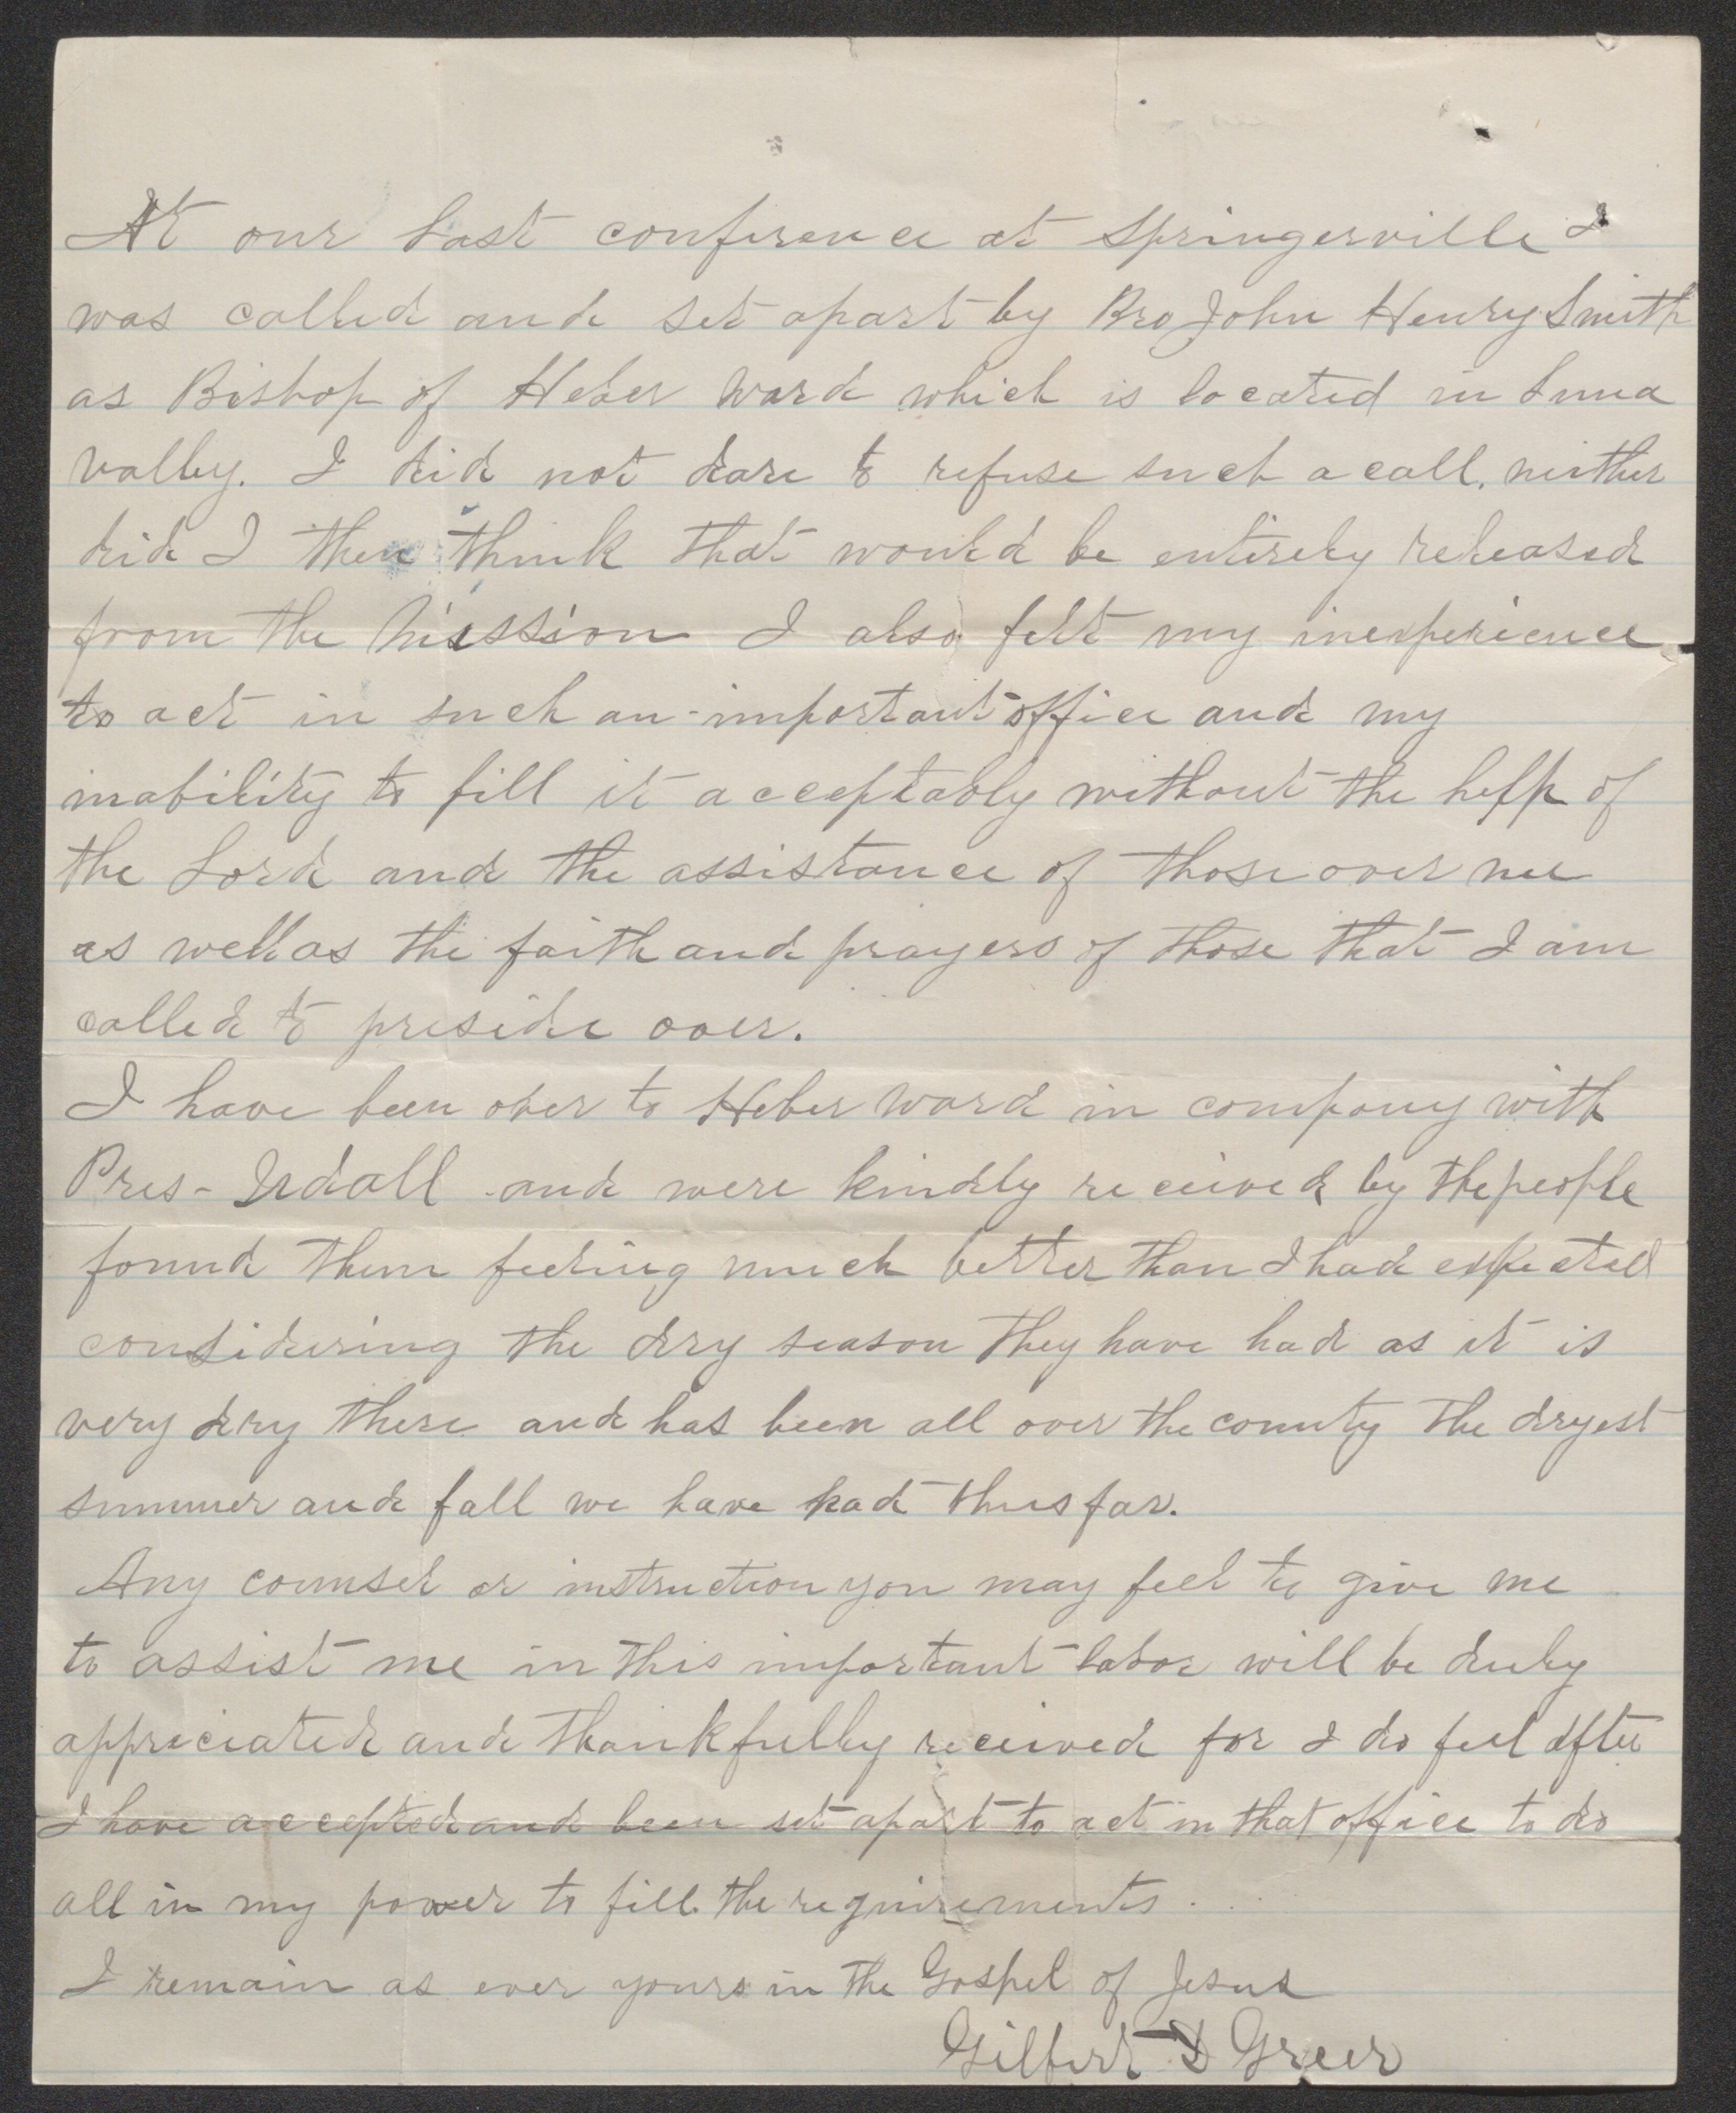 At our last conference at Springerville I
was called and set apart by Bro John Henry Smith
as Bishop of Heber Ward which is located in Luna
valley. I did not dare to refuse such a call, neither
did I then think that would be entirely released
from the Mission I also felt my inexperience
to act in such an important office and my
inability to fill it acceptably without the help of
the Lord and the assistance of those over me
as well as the faith and prayers of those that I am
called to preside over.
I have been over to Heber Ward in company with
Pres- Udall and were kindly received by the people
found them feeling much better than I had expected
considering the dry season they have had as it is
very dry there and has been all over the county the dryest
summer and fall we have had thus far.
Any counsel or instruction you may feel to give me
to assist me in this important labor will be duly
appreciated and thankfully received for I do feel after
I have accepted and been set apart to act in that office to do
all in my power to fill the requirements.
I remain as ever yours in the Gospel of Jesus
Gilbert D Greer